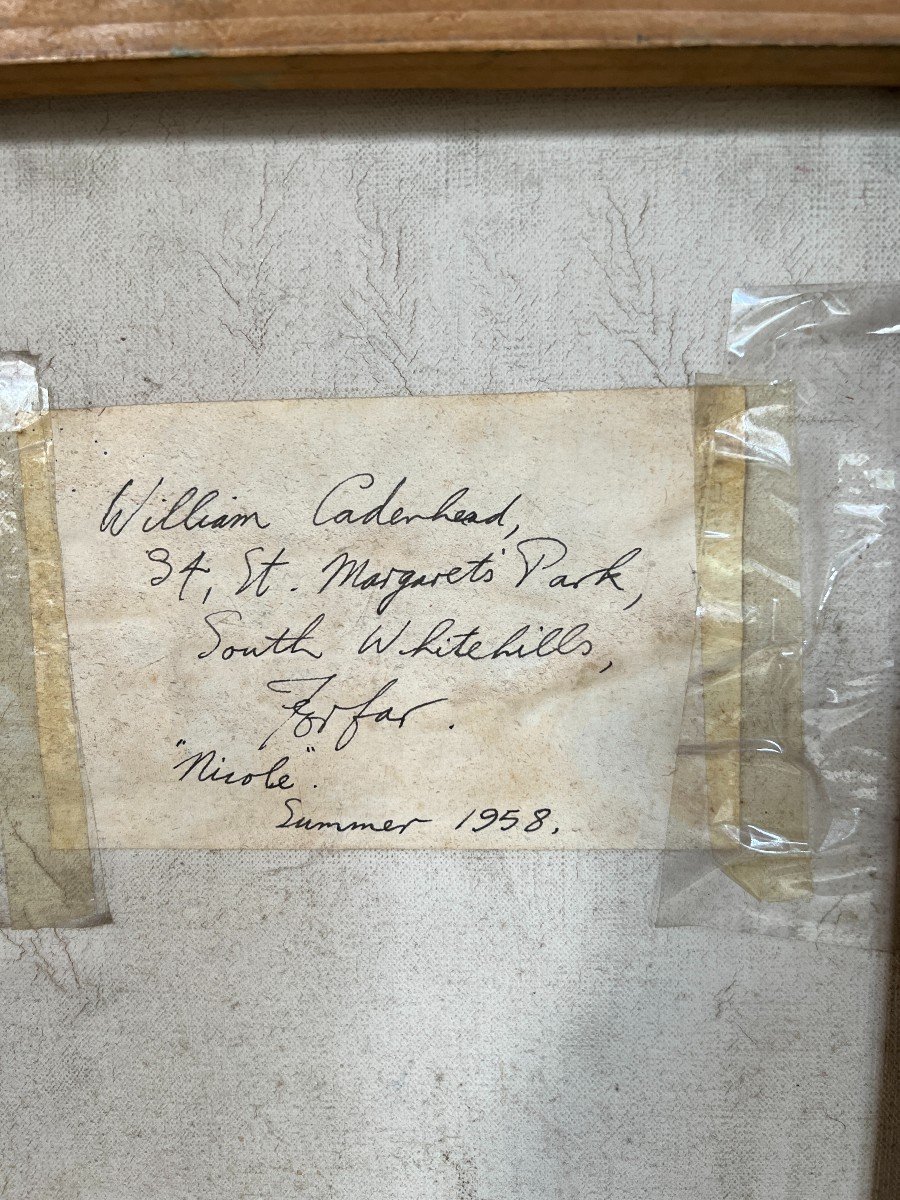 William Cadenhead,
34, St. Margaret's Park,
South Whitehills,
Forfar.
"Nicole".
Summer 1958.